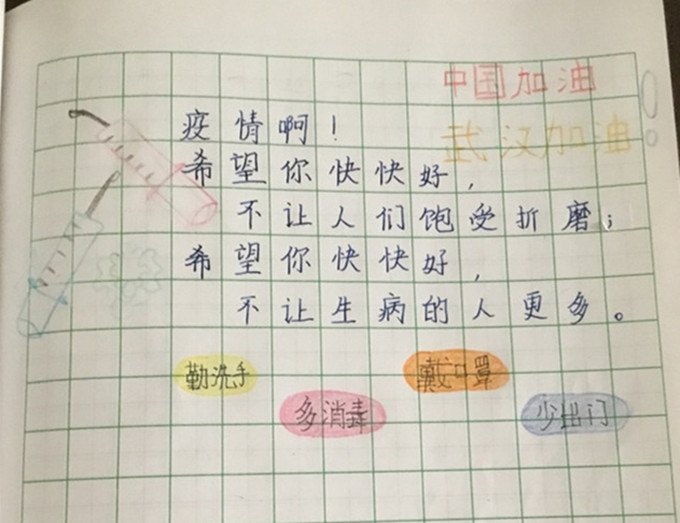 中国加油
武汉加油
疫情啊！
希望你快快好，
不让人们饱受折磨；
希望你快快好，
不让生病的人更多。
勤洗手
戴口罩
多消毒
少出门